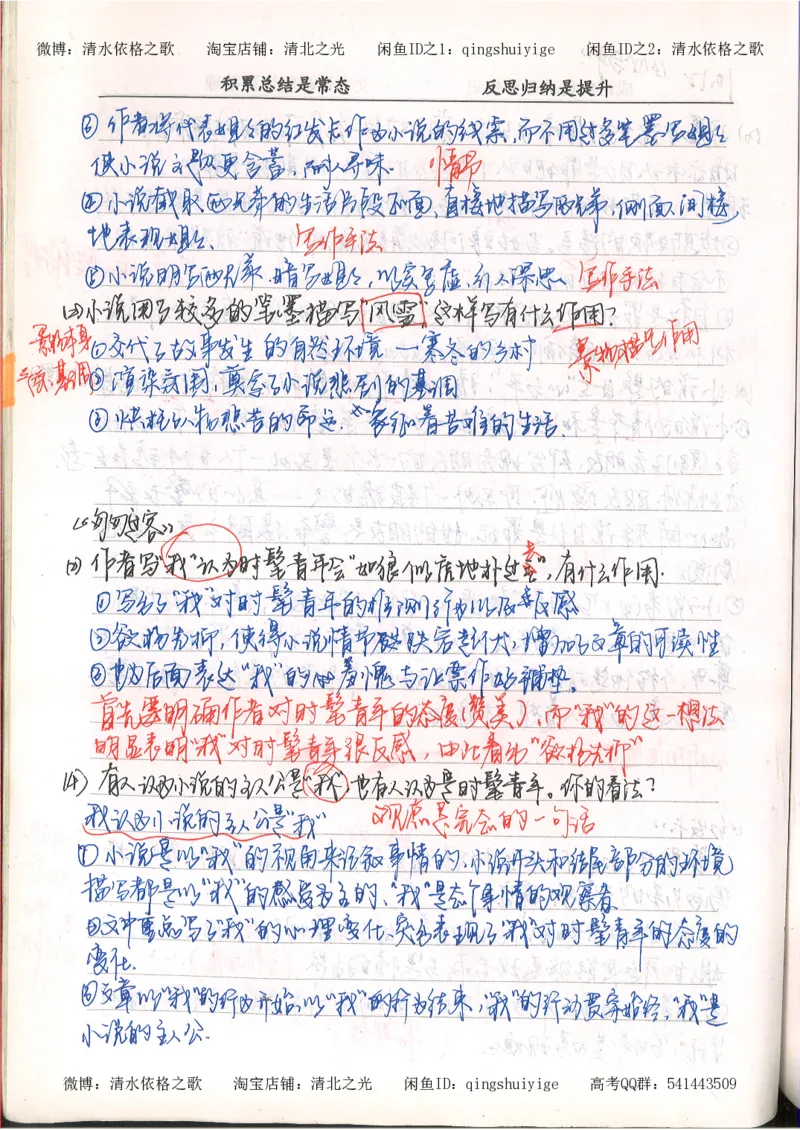 微博：清水依格之歌 淘宝店铺：清北之光 闲鱼ID之1：qingshuiyige 闲鱼ID之2：清水依格之歌
积累总结是常态 反思归纳是提升
③作者将代表姐姐的红发卡作为小说的线索，而不用过多笔墨写姐姐
使小说主题更含蓄，耐人寻味. 情节
④小说截取兄弟的生活片段和画面，直接地描写兄弟，侧面、间接
地表现姐姐. 写作手法
⑤小说明写兄弟，暗写姐姐，以实写虚，引人深思 写作手法
小说用了较多的笔墨描写"风雪"，这样写有什么作用？
景物本身 ①交代了故事发生的自然环境—寒冬的乡村 景物描写作用
气氛、基调 ②渲染氛围，奠定了小说悲剧的基调
③烘托人物悲苦的命运. 象征着苦难的生活.
《匆匆过客》
作者写"我"认为时髦青年会"如狼似虎地扑过去"，有什么作用.
①写出了"我"对时髦青年的推测行为以及反感
②欲扬先抑，使得小说情节跌宕，增加了文章的可读性
③也为后面表达"我"的羞愧与让票作好铺垫。
首先要明确作者对时髦青年的态度（赞美），而"我"的这一想法
明显表明"我"对时髦青年很反感，由此看出"欲扬先抑"
(4) 有人认为小说的主人公是"我"也有人认为是时髦青年。你的看法？
我认为小说的主人公是"我" 观点是完念的一句话
①小说是以"我"的视角来叙事情的，小说开头和结尾部分的环境
描写都是以"我"的感受为主的，"我"是个事情的观察者
②文中重点写了"我"的心理变化，突出表现了"我"对时髦青年的态度的
变化.
③文章以"我"的行为开始，以"我"的行为结束，"我"的行动贯穿始终，"我"是
小说的主人公.
微博：清水依格之歌 淘宝店铺：清北之光 闲鱼ID：qingshuiyige 高考QQ群：541443509